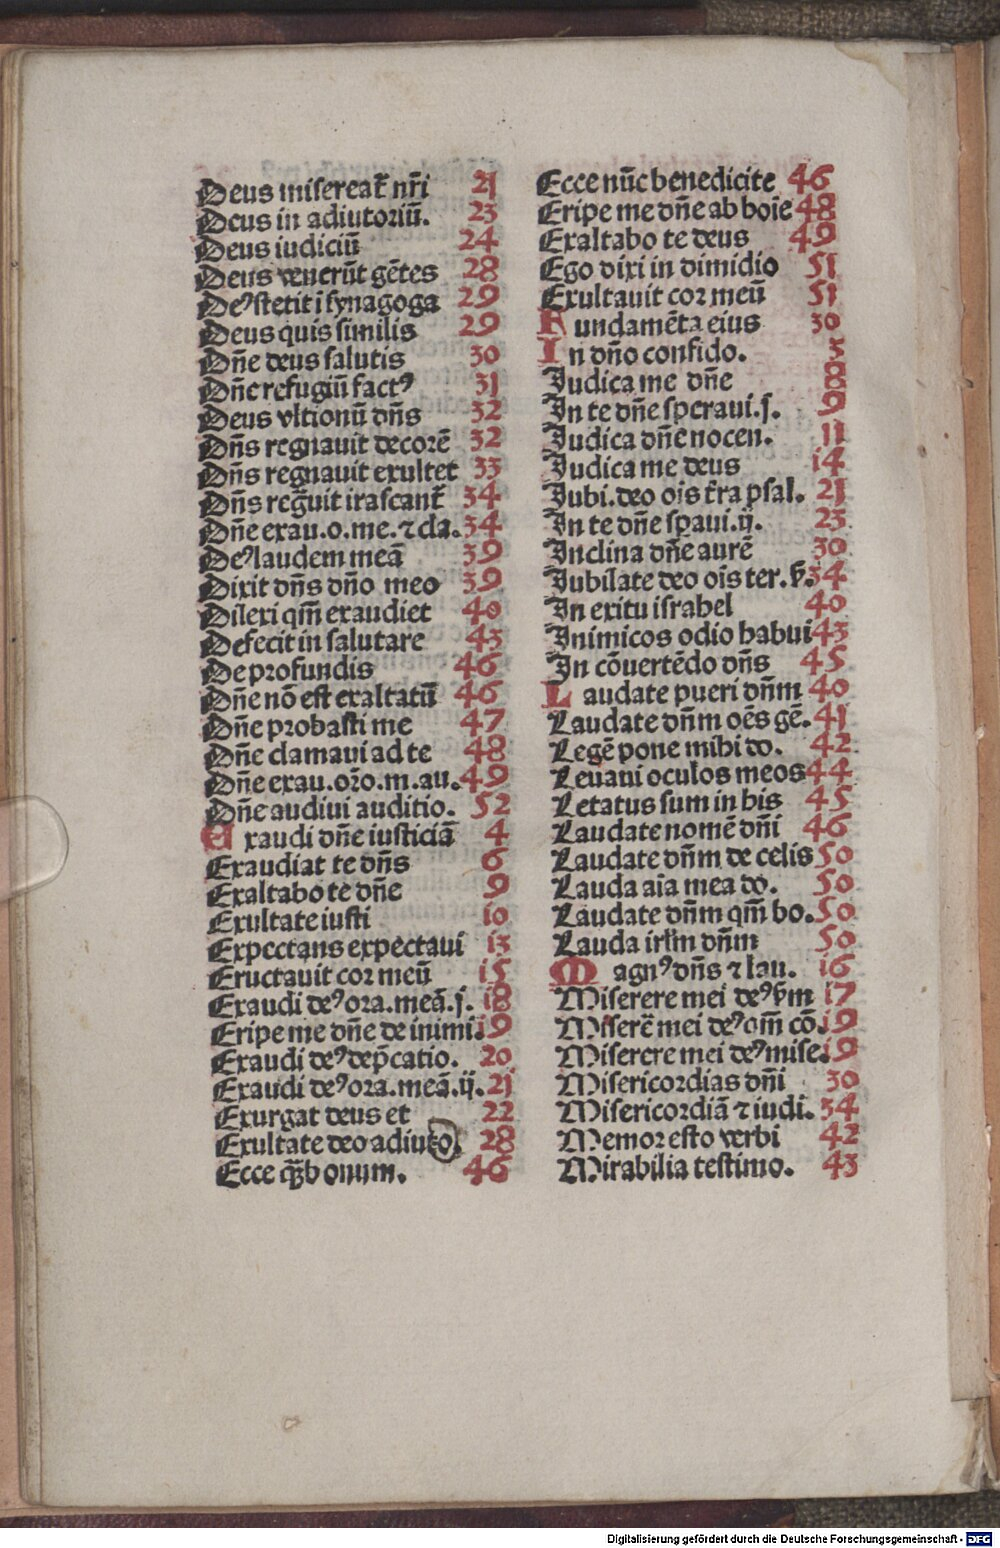 Deus misereat̃ nr̃i 21
Deus in adiutoriũ. 23
Deus iudiciũ 24
Deus venerũt gẽtes 28
Deꝰstetit i synagoga 29
Deus quis similis 29
Dñe deus salutis 30
Dñe refugiũ factꝰ 31
Deus vltionũ dñs 32
Dñs regnauit decorẽ 32
Dñs regnauit exultet 33
Dñs regᷓuit irascant̃ 34
Dñe exau.o.me.⁊ cla. 34
Deꝰlaudem meã 39
Dixit dñs dño meo 39
Dilexi qm̃ exaudiet 40
Defecit in salutare 43
De profundis 46
Dñe nõ est exaltatũ 46
Dñe probasti me 47
Dñe clamaui ad te 48
Dñe exau.oro.m.au. 49
Dñe audiui auditio. 52
Exaudi dñe iusticiã 4
Exaudiat te dñs 6
Exaltabo te dñe 9
Exultate iusti 10
Expectans expectaui 13
Eructauit cor meũ 15
Exaudi deꝰora.meã.j. 18
Eripe me dñe de inimi. 19
Exaudi deꝰdep̃catio. 20
Exaudi deꝰora.meã.ij. 21
Exurgat deus et 22
Exultate deo adiuto. 28
Ecce q̃ bonum. 46
Ecce nũc benedicite 46
Eripe me dñe ab hoĩe 48
Exaltabo te deus 49
Ego dixi in dimidio 51
Exultauit cor meũ 51
Fundamẽta eius 30
In dño confido. 5
Iudica me dñe 8
In te dñe speraui.j. 9
Iudica dñe nocen. 11
Iudica me deus 14
Iubi.deo oĩs t̃ra psal. 21
In te dñe sꝑaui.ij. 23
Inclina dñe aurẽ 30
Iubilate deo oĩs ter.ṽ. 34
In exitu israhel 40
Inimicos odio habui 43
In cõuertẽdo dñs 45
Laudate pueri dñm 40
Laudate dñm oẽs gẽ. 41
Legẽ pone mihi do. 42
Leuaui oculos meos 44
Letatus sum in his 45
Laudate nomẽ dñi 46
Laudate dñm de celis 50
Lauda aĩa mea do. 50
Laudate dñm qm̃ bo. 50
Lauda irl̃m dñm 50
Magnꝰdñs ⁊ lau. 16
Miserere mei deꝰṽm 17
Miserẽ mei deꝰom̃ cõ. 19
Miserere mei deꝰmise. 19
Misericordias dñi 30
Misericordiã ⁊ iudi. 34
Memor esto verbi 42
Mirabilia testimo. 43
Digitalisierung gefördert durch die Deutsche Forschungsgemeinschaft - DFG